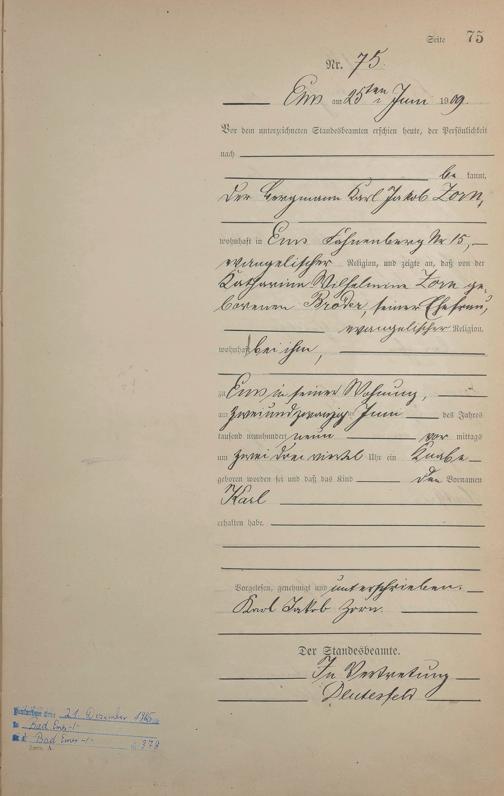 Seite 75
Nr. 75.
Ems am 25ten Juni 1909.
Vor dem unterzeichneten Standesbeamten erschien heute, der Persönlichkeit
nach
be kannt,
der Bergmann Karl Jakob Zorn,
wohnhaft in Ems Nr 15,
evangelischer Religion, und zeigte an, daß von der
Katharina Wilhelmine Zorn ge-
borenen Bröder, seiner Ehefrau,
evangelischer Religion,
wohnhaft bei ihm,
zu Ems in seiner Wohnung,
am zweiundzwanzig Juni des Jahres
tausend neunhundert neun vor mittags
um zwei drei viertel Uhr ein Knabe
geboren worden sei und daß das Kind den Vornamen
Karl
erhalten habe.
Vorgelesen, genehmigt und unterschrieben.
Karl Jakob Zorn.
Der Standesbeamte.
In Vertretung
21. Dezember
Bad Ems
Bad Ems
378